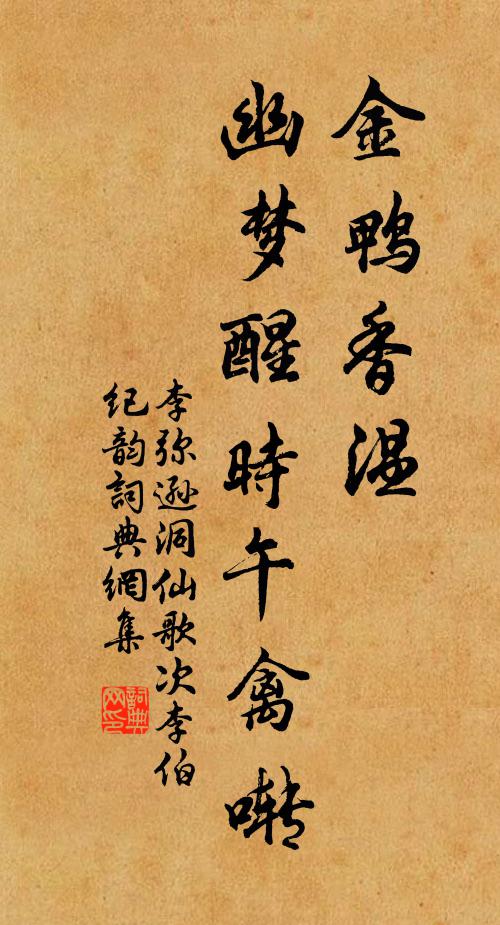 金鸭香温
幽梦醒時午禽啭
李弥遜洞仙歌次李伯
纪韵詞典網集
詞典
网印